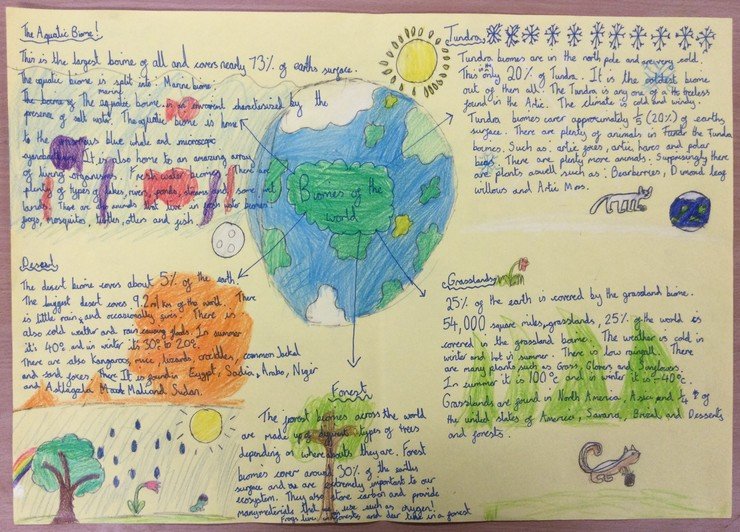 The Aquatic Biome!
This is the largest boime of all and covers nearly 73% of earths surface.
The aquatic biome is split into: Marine biome
The aquatic biome is characterized by the
presence of salt water. The aquatic biome is home
to the enormous blue whale and microscopic
It is also home to an amazing array
of living organisms. Fresh water biomes: There are
plenty of types of lakes, rivers, ponds, streams and some wet
lands. There are also animals that live in fresh water biomes
frogs, mosquitos, turtles, otters and fish.
Biomes of the
world
Tundra
Tundra biomes are in the north pole and very cold.
This is only 20% of Tundra. It is the coldest biome
out of them all. The Tundra is any one of a the treeless
found in the Artic. The climate is cold and windy.
Tundra biomes cover approximately 1/5 (20%) of earths
surface. There are plenty of animals in the Tundra
boimes. Such as: artic foxes, artic hares and polar
bears. There are plenty more animals. Surprisingly there
are plants aswell such as: Bearberries, Dimond leaf
willows and Artic Moss.
Desert
The desert biome covers about 5% of the earth.
The biggest desert coves 9.2 mil km of the world. There
is little rain, and occasionally rivers! There is
also cold wethter and rain causing floods. In summer
it's 40° and in winter it 30° to 20°.
There are also kangaroos, mice, lizards, crocidiles, common Jackal
and sand foxes. It is found in Eygypt, Sadia, Arabo, Niger
and Antlagata Mali and Sudan.
Forest
The forest biomes across the world
are made up of different types of trees
depending on where abouts they are. Forest
biomes cover around 30% of the earths
surface and are extremely important to our
ecosystem. They also store carbon and provide
many materials that we use such as oxygen!
Frogs live in forests and deer live in a forest
Grasslands
25% of the earth is covered by the grassland biome.
54,000 square miles, grasslands, 25% of the world is
covered in the grassland biome. The weather is cold in
winter and hot in summer. There is low rainfall. There
are many plants such as Grass, Clovers and Sunflowers.
In summer it is 100°c and in winter it is -40°c.
Grasslands are found in North America, Asia and 1/4 of
the united states of America, Savana, Brizal and Desserts
and forests.